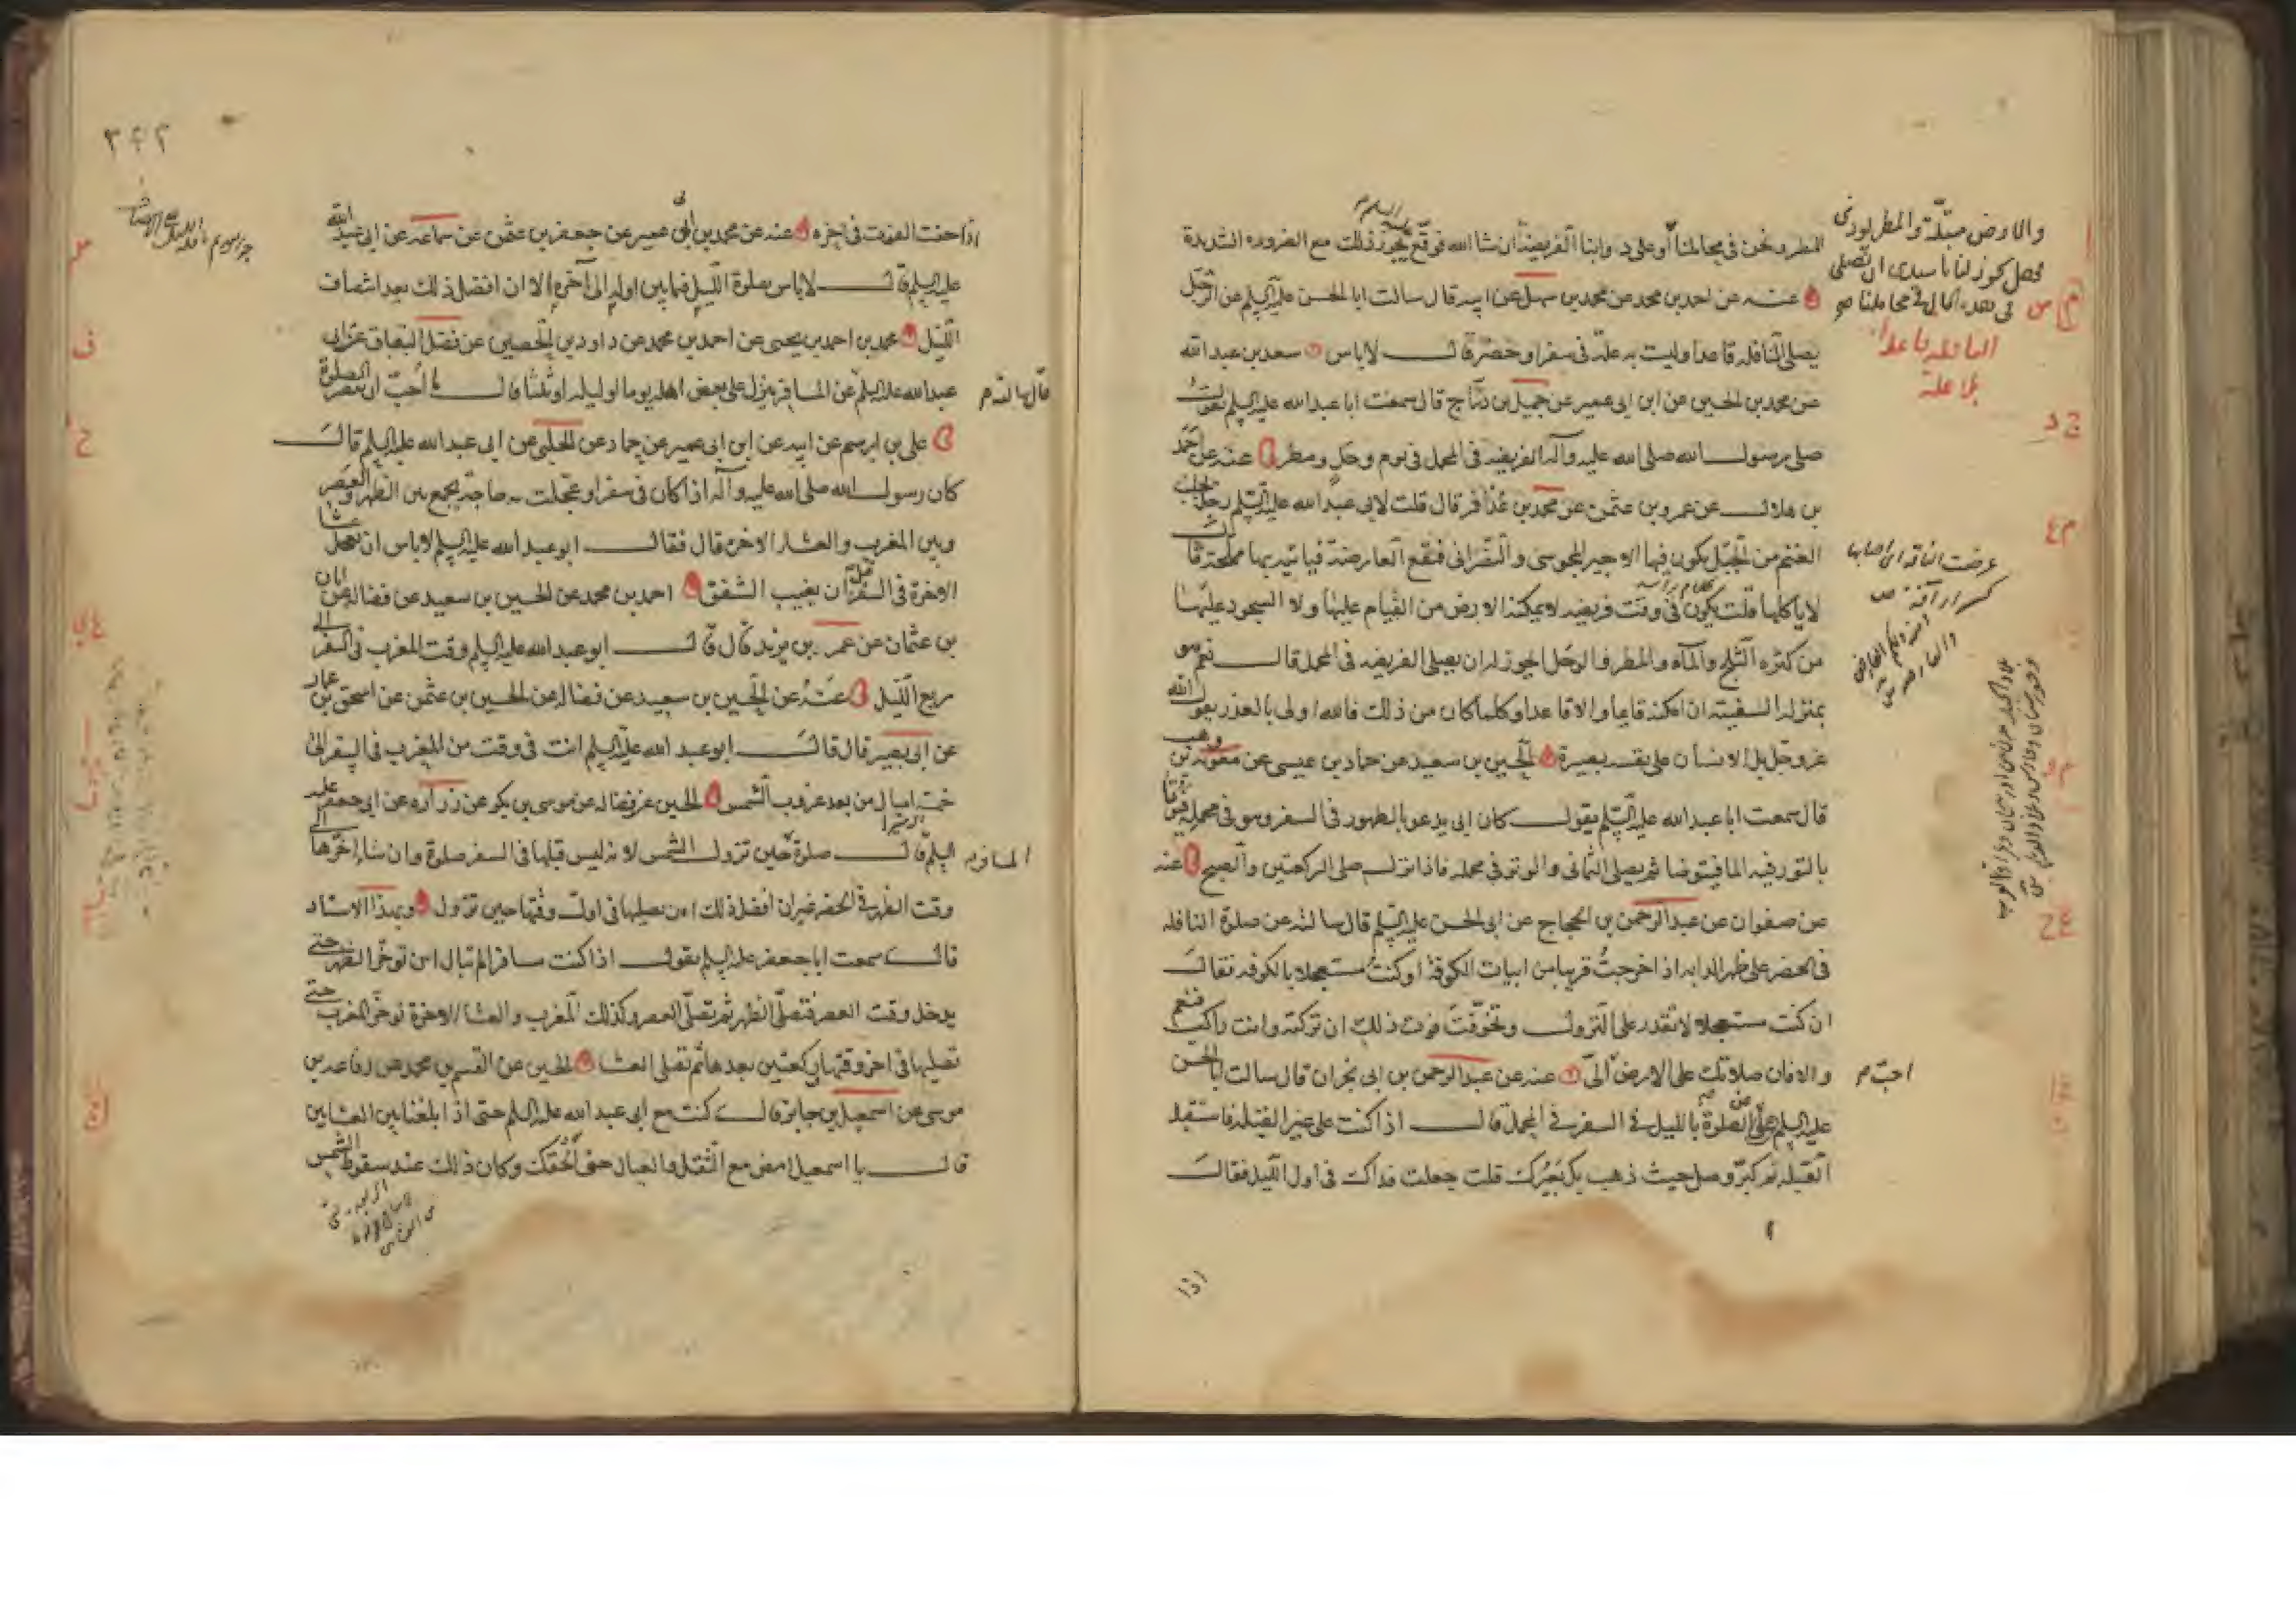 المطر ونحن في محاملنا أو على دوابنا الفريضة ان شا الله فوقع يجوز ذلك مع الضرورة الشديدة
عنه عن احمد بن محمد عن محمد بن سهل عن ابيه قال سالت ابا الحسن عليه السلم عن الرجل
يصلى النافله قاعدا وليست به علة في سفر او حضر قال لاباس سعد بن عبد الله
عن محمد بن الحسين عن ابن ابى عمير عن جميل بن دراج قال سمعت ابا عبد الله عليه السلم يقول
صلى رسول الله صلى الله عليه وآله الفريضه في المحمل في يوم وحل ومطر عنه عن احمد
بن هلال عن عمرو بن عثمن عن محمد بن عذافر قال قلت لابى عبد الله عليه السلم رجل يجلب
الغنم من الجبل يكون فيها الاجير المجوسى والنصرانى فتقع العارضة فياتيه بها مملحة قال
لا ياكلها قلت يكون في وقت فريضه لا يمكنه الارض من القيام عليها ولا السجود عليها
من كثرة الثلج والمآء والمطر والوحل ايجوز له ان يصلى الفريضه في المحمل قال نعم هو
بمنزلة السفينة ان امكنه قايما والا قاعدا وكلما كان من ذلك فالله اولى بالعذر يقول الله
عز وجل بل الانسان على نفسه بصيرة الحسين بن سعيد عن حماد بن عيسى عن معوية بن وهب
قال سمعت ابا عبد الله عليه السلم يقول كان ابى يدعو بالطهور في السفر وهو في محمله فيؤتا
بالتور فيه الما فيتوضا ثم يصلى الثمانى والوتر في محمله فاذا نزل صلى الركعتين والصبح عنه
عن صفوان عن عبد الرحمن بن الحجاج عن ابى الحسن عليه السلم قال سالته عن صلوة النافله
في الحضر على ظهر الدابه اذا خرجت قريبا من ابيات الكوفة او كنت مستعجلا بالكوفه فقال
ان كنت مستعجلا لا تقدر على النزول وتخوفت فوت ذلك ان تركته وانت راكب فنعم
والا فان صلاتك على الارض الىّ عنه عن عبد الرحمن بن ابى نجران قال سالت ابا الحسن
عليه السلم عن الصلوة بالليل في السفر في المحمل قال اذا كنت على غير القبلة فاستقبل
القبله ثم كبر وصل حيث ذهب بك بعيرك قلت جعلت فداك في اول الليل فقال
والارض مبتلّة والمطر يوذى
فهل يجوز لنا يا سيدى ان نصلى
في هذه الحال في محاملنا
النافله قاعدا
بلا علة
احبّ م
٣٤٢
اذا خفت الفوت في اخره عنه عن محمد بن ابى عمير عن جعفر بن عثمن عن سماعه عن ابى عبد الله
عليه السلم قال لا باس بصلوة الليل فيما بين اوله الى آخره الا ان افضل ذلك بعد انتصاف
الليل محمد بن احمد بن يحيى عن احمد بن محمد عن داود بن الحصين عن فضل البقباق عن ابى
عبد الله عليه السلم عن المسافر ينزل على بعض اهله يوما او ليله او ثلثا قال ما أحبّ ان يقصر الصلوة
علي بن ابرهيم عن ابيه عن ابن ابى عمير عن حماد عن الحلبى عن ابى عبد الله عليه السلم قال
كان رسول الله صلى الله عليه وآله اذا كان في سفر او عجلت به حاجة يجمع بين الظهر والعصر
وبين المغرب والعشاء الاخرة قال فقال ابو عبد الله عليه السلم لاباس ان تعجل عشا
الاخرة في السفر قبل ان يغيب الشفق احمد بن محمد عن الحسين بن سعيد عن فضاله عن ابان
بن عثمان عن عمر بن يزيد قال قال ابو عبد الله عليه السلم وقت المغرب في السفر الى
ربع الليل عنه عن الحسين بن سعيد عن فضاله عن الحسين بن عثمن عن اسحق بن عمار
عن ابى بصير قال قال ابو عبد الله عليه السلم انت في وقت من المغرب في السفر الى
خمسة اميال من بعد غروب الشمس الحسين عن فضاله عن موسى بن بكر عن زراره عن ابى جعفر عليه
السلم قال صلوة حين تزول الشمس لانه ليس قبلها في السفر صلوة وان شاء اخرها الى
وقت الظهر في الحضر غير ان افضل ذلك ان يصليها في اول وقتها حين تزول وبهذا الاسناد
قال سمعت ابا جعفر عليه السلم يقول اذا كنت مسافرا لم تبال ان توخر الظهر حتى
يدخل وقت العصر فتصلى الظهر ثم تصلى العصر وكذلك المغرب والعشا الاخرة توخر المغرب حتى
تصليها في اخر وقتها وركعتين بعدها ثم تصلى العشا الحسين عن القسم بن محمد عن رفاعه بن
موسى عن اسمعيل بن جابر قال كنت مع ابى عبد الله عليه السلم حتى اذا بلغنا بين العشاين
قال يا اسمعيل امض مع الثقل والعيال حتى الحقك وكان ذلك عند سقوط الشمس
قال سالته م
المسافر